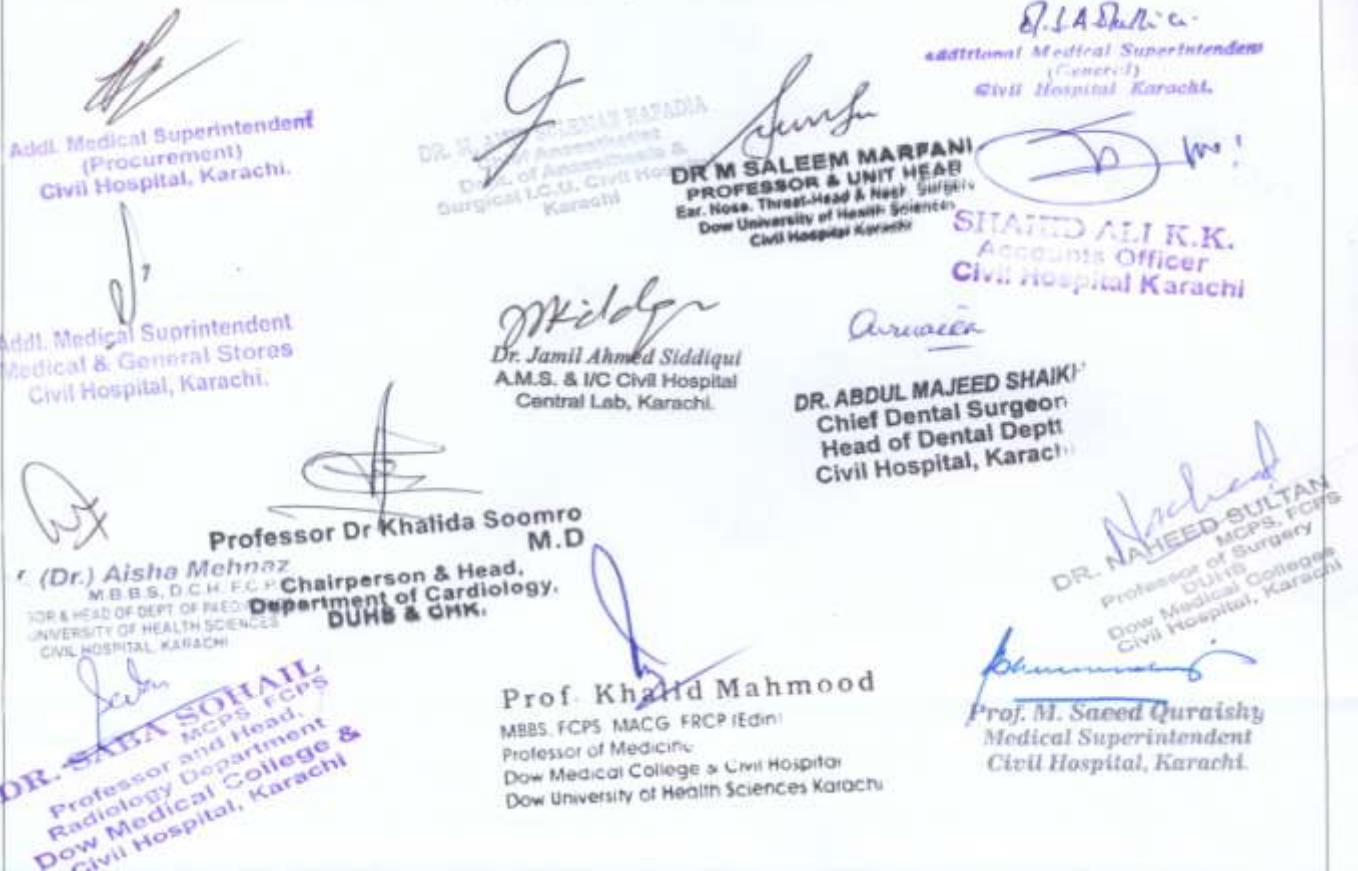 Addl. Medical Superintendent
(Procurement)
Civil Hospital, Karachi.
DR. M.
of Anaesthetics
Deptt. of Anaesthesia &
Surgical I.C.U. Civil Hospital
Karachi
DR M SALEEM MARFANI
PROFESSOR & UNIT HEAD
Ear, Nose, Throat-Head & Neck Surgery
Dow University of Health Sciences
Civil Hospital Karachi
Additional Medical Superintendent
(General)
Civil Hospital Karachi.
SHAHID ALI K.K.
Accounts Officer
Civil Hospital Karachi
Addl. Medical Suprintendent
Medical & General Stores
Civil Hospital, Karachi.
Dr. Jamil Ahmed Siddiqui
A.M.S. & I/C Civil Hospital
Central Lab, Karachi.
DR. ABDUL MAJEED SHAIKH
Chief Dental Surgeon
Head of Dental Deptt
Civil Hospital, Karachi
(Dr.) Aisha Mehnaz
M.B.B.S, D.C.H, F.C.P.
& HEAD OF DEPT OF
UNIVERSITY OF HEALTH SCIENCES
CIVIL HOSPITAL, KARACHI
Professor Dr Khalida Soomro
M.D
Chairperson & Head,
Department of Cardiology,
DUHS & CHK.
Naheed
DR. NAHEED SULTAN
MCPS, FCPS
Professor of Surgery
DUHS
Dow Medical College
Civil Hospital, Karachi
DR. SABA SOHAIL
MCPS, FCPS
Professor and Head,
Radiology Department
Dow Medical College &
Civil Hospital, Karachi
Prof. Khalid Mahmood
MBBS, FCPS, MACG, FRCP (Edin)
Professor of Medicine
Dow Medical College & Civil Hospital
Dow University of Health Sciences Karachi
Prof. M. Saeed Quraishy
Medical Superintendent
Civil Hospital, Karachi.